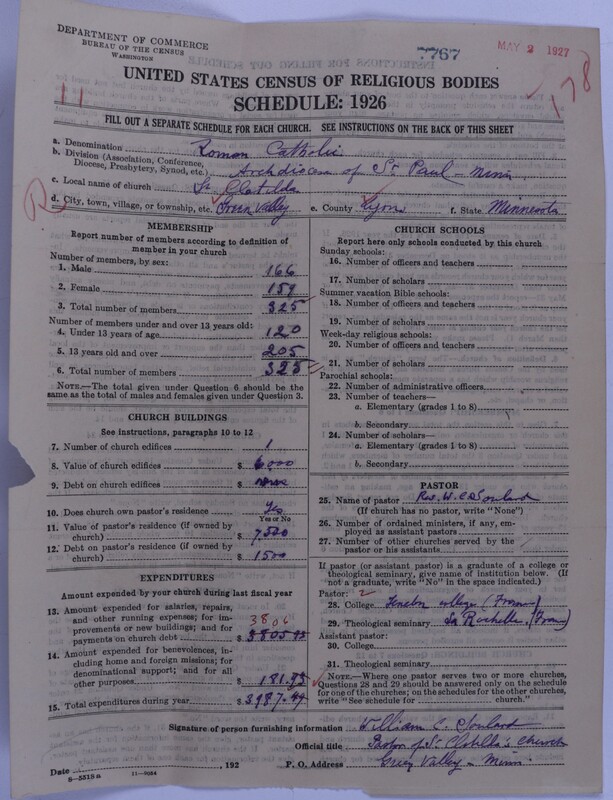 DEPARTMENT OF COMMERCE
BUREAU OF THE CENSUS
WASHINGTON
7767
MAY 2 1927
178
11
UNITED STATES CENSUS OF RELIGIOUS BODIES
SCHEDULE: 1926
FILL OUT A SEPARATE SCHEDULE FOR EACH CHURCH. SEE INSTRUCTIONS ON THE BACK OF THIS SHEET
a. Denomination Roman Catholic
b. Division (Association, Conference, Diocese, Presbytery, Synod, etc.) Archdiocese of St Paul - Minn
c. Local name of church St Clotilda
d. City, town, village, or township, etc. Green Valley e. County Lyon f. State Minnesota
MEMBERSHIP
Report number of members according to definition of
member in your church
Number of members, by sex:
1. Male 166
2. Female 159
3. Total number of members 325
Number of members under and over 13 years old:
4. Under 13 years of age 120
5. 13 years old and over 205
6. Total number of members 325
NOTE.—The total given under Question 6 should be
same as the total of males and females given under Question 3.
CHURCH BUILDINGS
See instructions, paragraphs 10 to 12
7. Number of church edifices 1
8. Value of church edifices $ 6000
9. Debt on church edifices $ none
10. Does church own pastor's residence? Yes
Yes or No
11. Value of pastor's residence (if owned by
church) $ 7500
12. Debt on pastor's residence (if owned by
church) $ 1500
EXPENDITURES
Amount expended by your church during last fiscal year
13. Amount expended for salaries, repairs,
and other running expenses; for im-
provements or new buildings; and for
payments on church debt 3806
$ 3805.75
14. Amount expended for benevolences, in-
cluding home and foreign missions; for
denominational support; and for all
other purposes $ 181.73
15. Total expenditures during year $ 3987.49
CHURCH SCHOOLS
Report here only schools conducted by this church
Sunday schools:
16. Number of officers and teachers
17. Number of scholars
Summer vacation Bible schools:
18. Number of officers and teachers
19. Number of scholars
Week-day religious schools:
20. Number of officers and teachers
21. Number of scholars
Parochial schools:
22. Number of administrative officers
23. Number of teachers—
a. Elementary (grades 1 to 8)
b. Secondary
24. Number of scholars—
a. Elementary (grades 1 to 8)
b. Secondary
PASTOR
25. Name of pastor Rev. W. C. Soulard
(If church has no pastor, write "None")
26. Number of ordained ministers, if any, em-
ployed as assistant pastors
27. Number of other churches served by the
pastor or his assistants
If pastor (or assistant pastor) is a graduate of a college or
theological seminary, give name of institution below. (If
not a graduate, write "No" in the space indicated.)
Pastor: 2
28. College Fenelon college (France)
29. Theological seminary La Rochelle (France)
Assistant pastor:
30. College
31. Theological seminary
NOTE.—Where one pastor serves two or more churches,
Questions 28 and 29 should be answered only on the schedule
for one of the churches; on the schedules for the other churches,
write "See schedule for church."
Signature of person furnishing information William C. Soulard
Official title Pastor of St Clotilda's Church
Date , 192 P. O. Address Green Valley - Minn.
8-5318a 11-9084